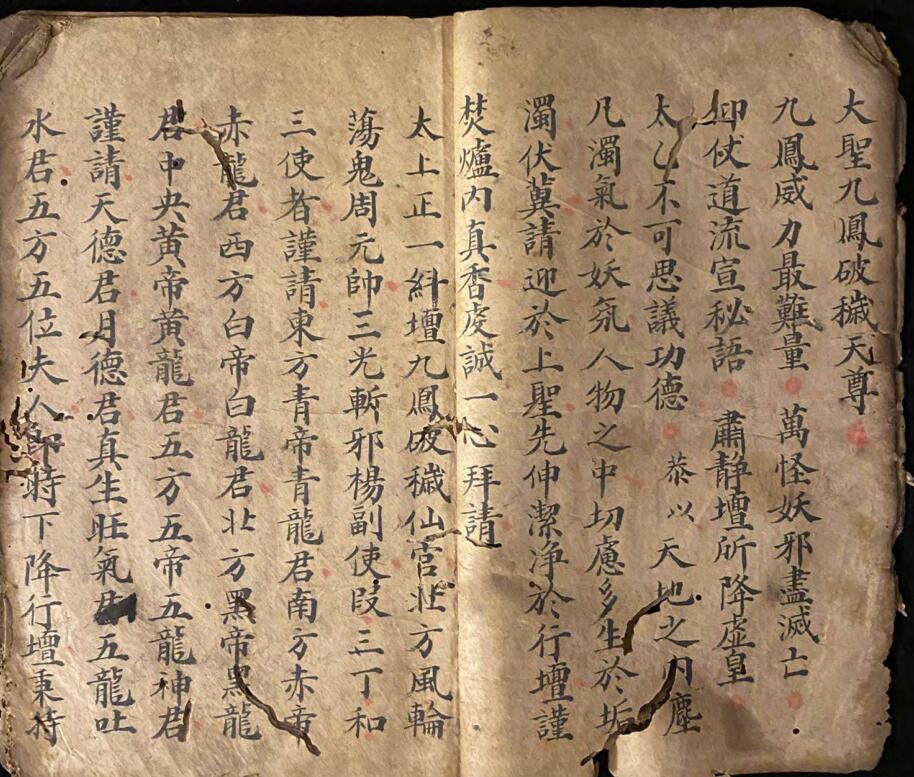 大聖九鳳破穢天尊
九鳳威力最難量 萬怪妖邪盡滅亡
仰仗道流宣秘語 肅静壇所降虚皇
太乙不可思議功德 恭以天地之内塵
凡濁氣於妖氛人物之中切慮多生於垢
濁伏兾請迎於上聖先伸潔净於行壇謹
焚爐内真香虔誠一心拜請
太上正一糾壇九鳳破穢仙官北方風輪
蕩鬼周元帥三光斬邪楊副使叚三丁和
三使者謹請東方青帝青龍君南方赤帝
赤龍君西方白帝白龍君北方黑帝黑龍
君中央黄帝黄龍君五方五帝五龍神君
謹請天德君月德君真生旺氣君五龍吐
水君五方五位夫人即時下降行壇秉持